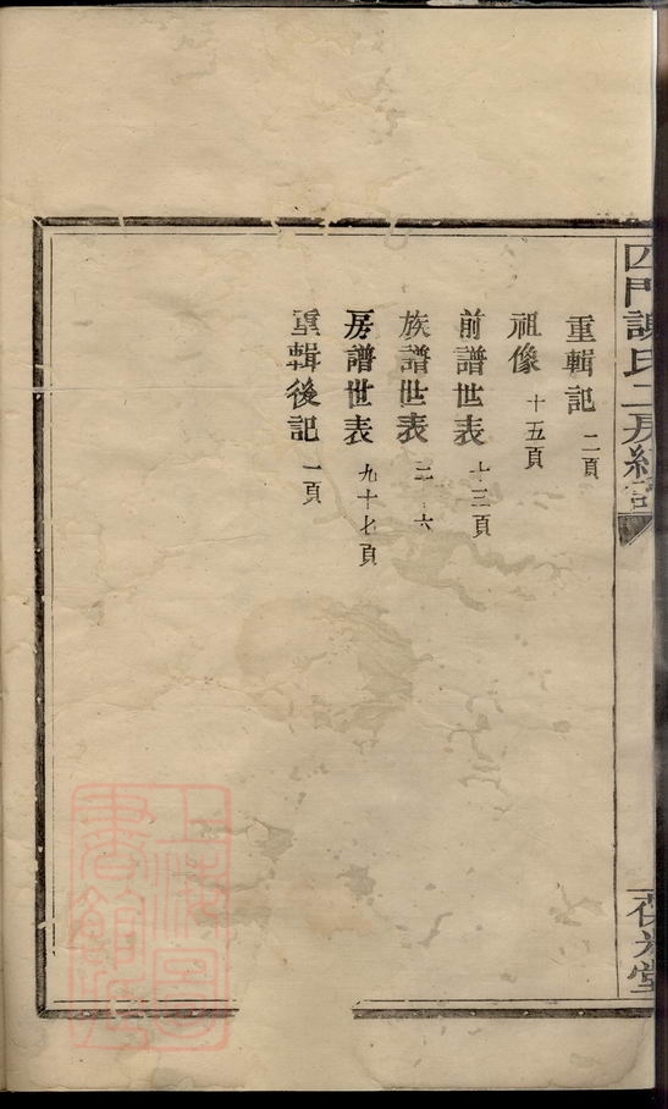 四門謝氏二房
保光堂
重輯記 二頁
祖像 十五頁
前譜世表 十三頁
族譜世表 二 六
房譜世表 九十七頁
重輯後記 一頁
上海圖書館藏